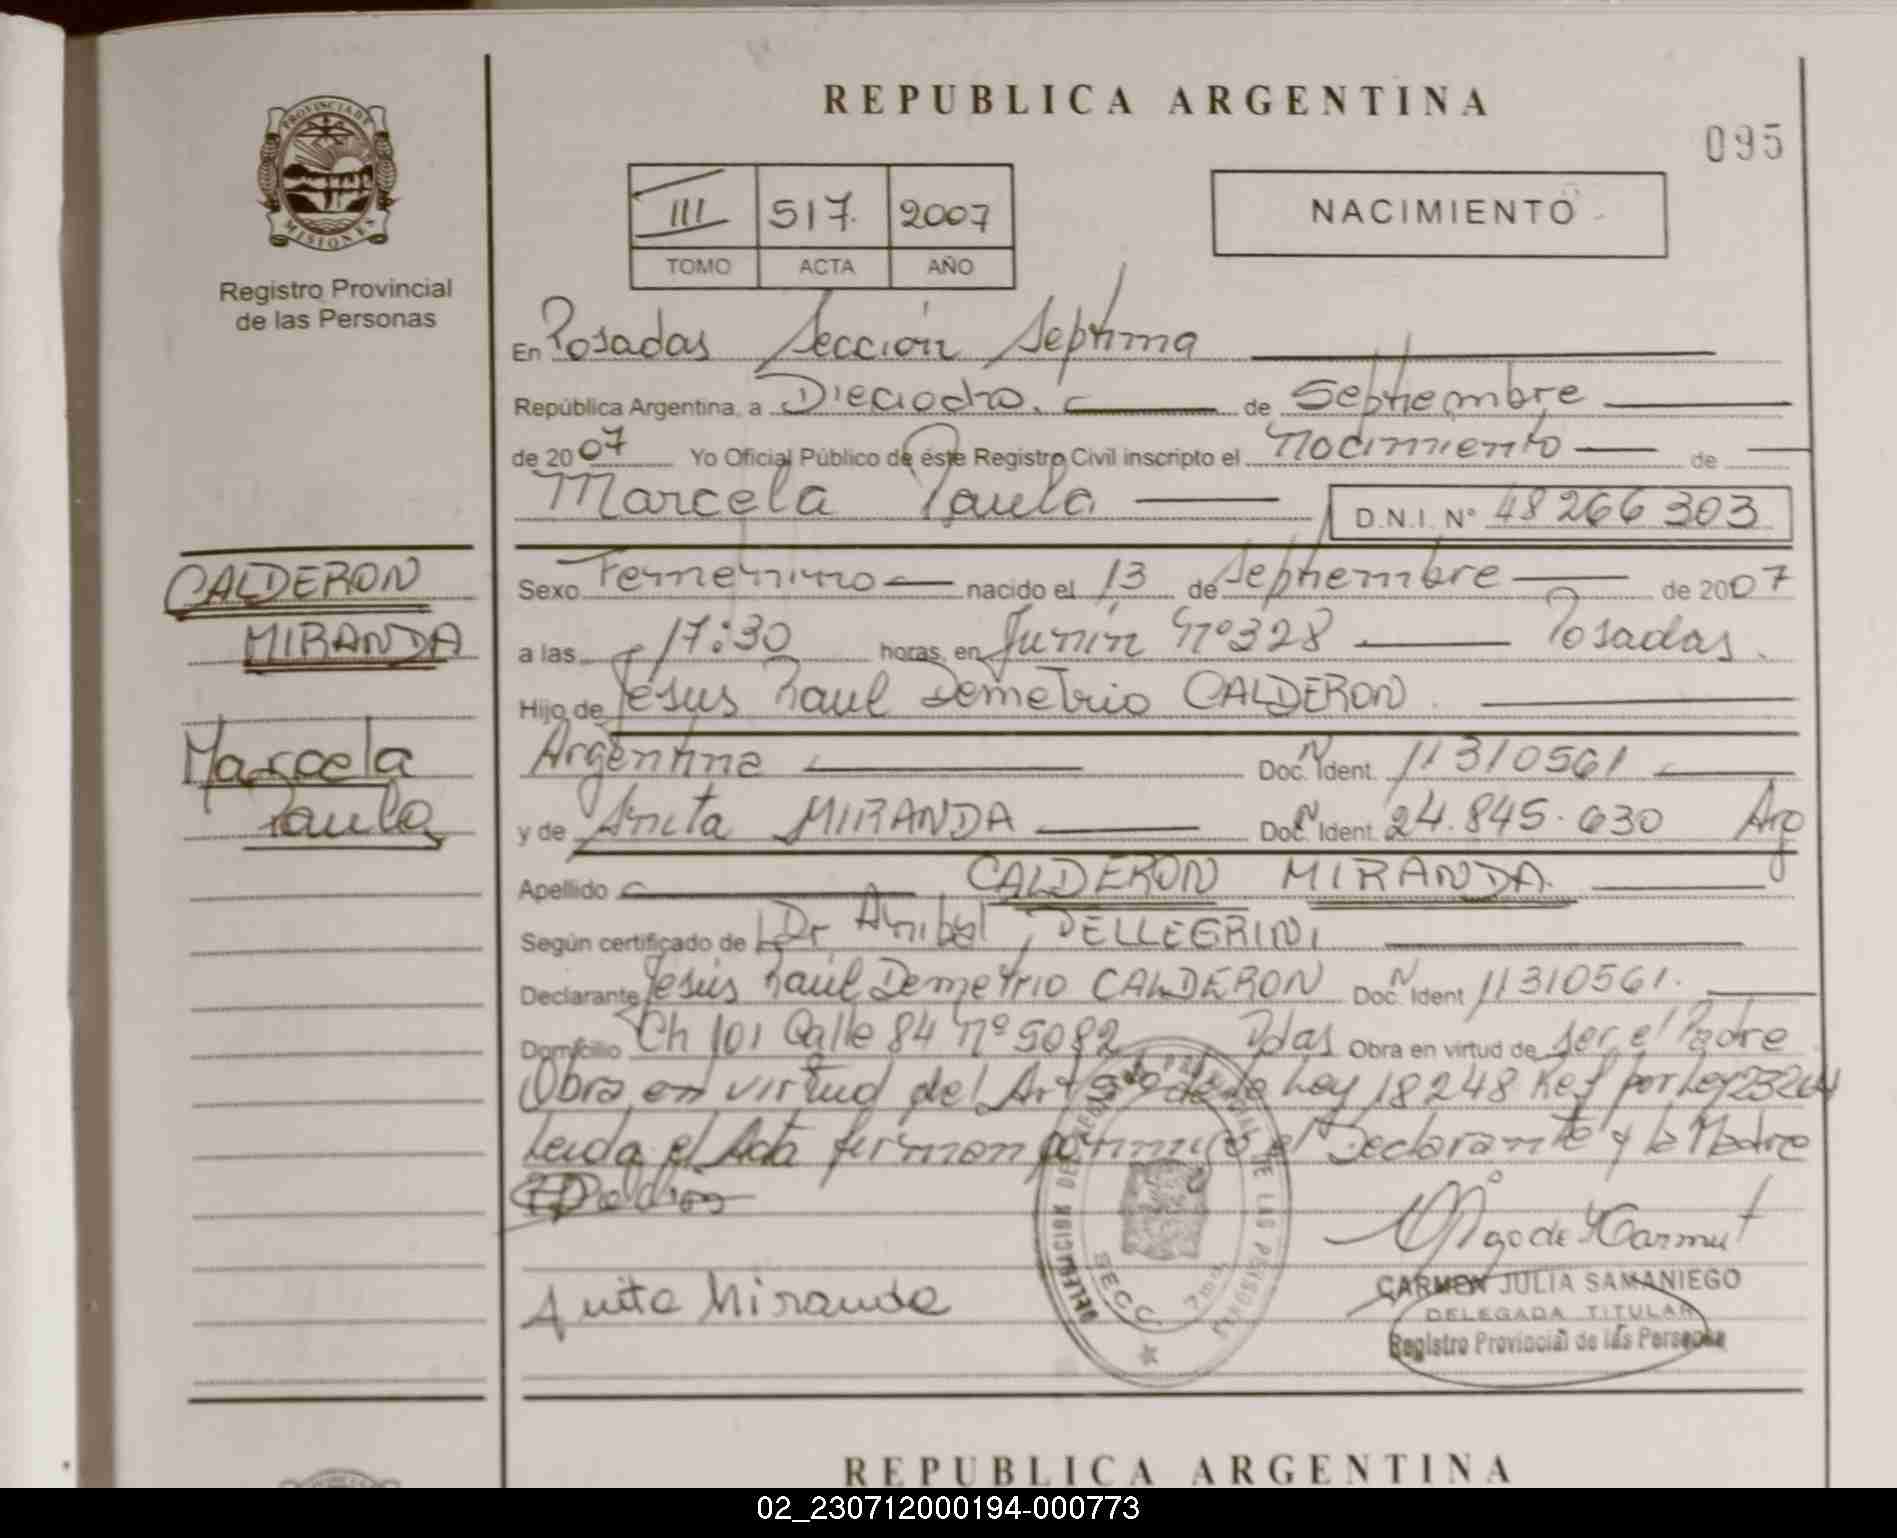 REPUBLICA ARGENTINA
095
PROVINCIA DE
MISIONES
Registro Provincial
de las Personas
III 517 2007
TOMO ACTA AÑO
NACIMIENTO
En Posadas Sección Septima
República Argentina, a Dieciocho de Septiembre
de 2007 Yo Oficial Público de éste Registro Civil inscripto el Nacimiento de
Marcela Paula D.N.I. N° 48266303
CALDERON
MIRANDA
Marcela
Paula
Sexo Femenino nacido el 13 de Septiembre de 2007
a las 17:30 horas, en Junín Nº 328 Posadas.
Hijo de Jesus Raul Demetrio CALDERON
Argentina Doc. Ident. 11310561
y de Anita MIRANDA Doc. Ident. 24.845.630 Arg
Apellido CALDERON MIRANDA
Según certificado de Dr Anibal PELLEGRINI
Declarante Jesús Raúl Demetrio CALDERON Doc. Ident 11310561.
Domicilio Ch 101 Calle 84 Nº 5082 Pdas Obra en virtud de ser el Padre
Obra en virtud del Art de la Ley 18248 Ref por Ley
Leida el Acta firman el Declarante y la Madre
DELEGACION DEL REGISTRO PROVINCIAL DE LAS PERSONAS
SECC. 7ma
Anita Miranda
CARMEN JULIA SAMANIEGO
DELEGADA TITULAR
Registro Provincial de las Personas
REPUBLICA ARGENTINA
02_230712000194-000773